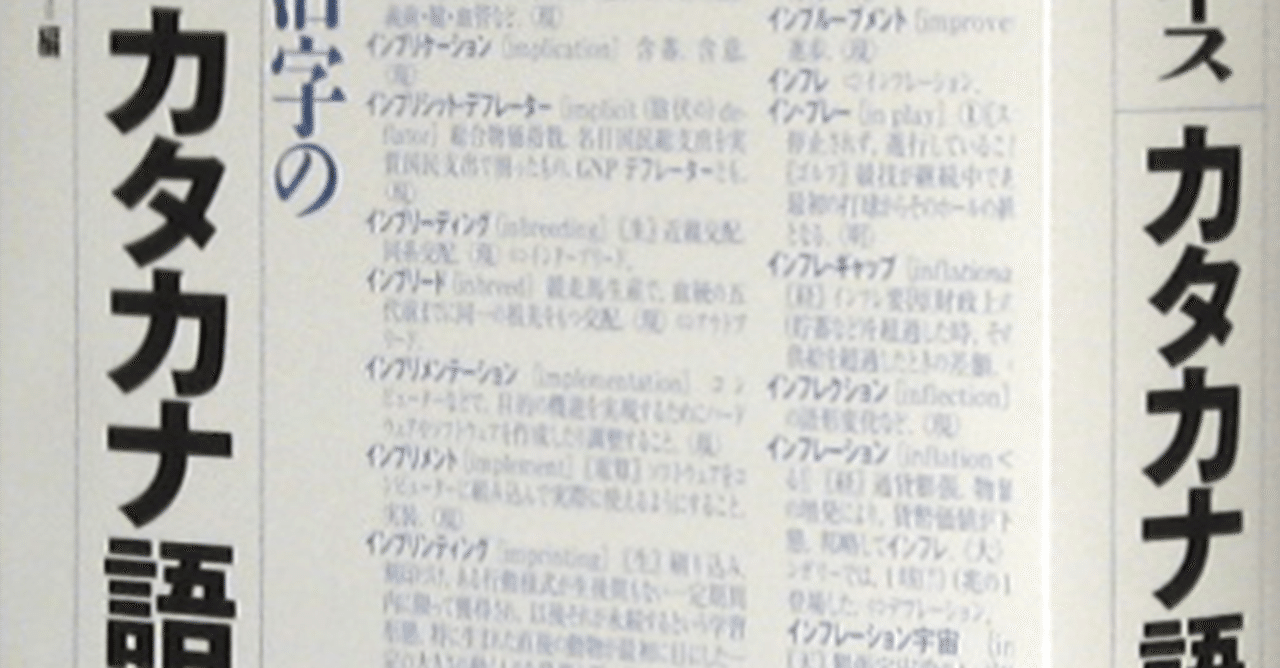 編
カタカナ語
活字の
義歯・腟・血管など.(現)
インプリケーション [implication] 含蓄. 含意.
(現)
インプリシットデフレーター [implicit (潜伏の) de-
flator] 総合物価指数. 名目国民総支出を実
質国民支出で割ったもの. GNP デフレーターとも.
(現)
インブリーディング [inbreeding] 〖生〗近親交配.
同系交配.(現) ⇨インターブリード.
インブリード [inbreed] 競走馬生産で, 血統の五
代前までに同一の祖先をもつ交配.(現) ⇨アウトブ
リード.
インプリメンテーション [implementation] コン
ピューターなどで, 目的の機能を実現するためにハード
ウェアやソフトウェアを作成したり調整すること.(現)
インプリメント [implement] 〖電算〗ソフトウェアをコ
ンピューターに組み込んで実際に使えるようにすること.
実装.(現)
インプリンティング [imprinting] 〖生〗刷り込み.
刻印づけ. ある行動様式が生後間もない一定期間
内に限って獲得され, 以後それが永続するという学習
形態. 特に生まれた直後の動物が最初に目にした一
インプルーブメント [improve
進歩.(現)
インフレ ⇨インフレーション.
イン・プレー [in play] ①〖ス
停止されず, 進行しているこ
〖ゴルフ〗競技が継続中であ
最初の打球からそのホールの終
となる.(明)
インフレ・ギャップ [inflationa
〖経〗インフレ要因. 財政上
(貯蓄など)を超過した時, その
供給を超過したときの差額.
インフレクション [inflection]
の語形変化など.(現)
インフレーション [inflation <
る] 〖経〗通貨膨張. 物価
の増発により, 貨幣価値が下
態. 略してインフレ.(大)
登場した. ⇨デフレーション.
インフレーション宇宙 [in
ース
カタカナ語